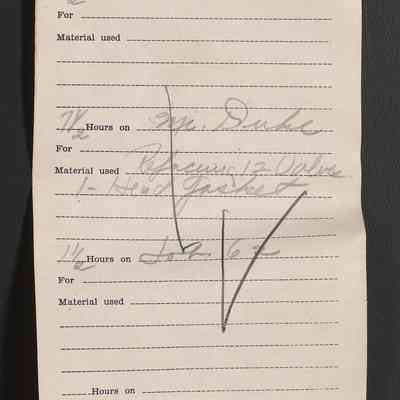 For
Material used
7 1/2 Hours on Mr. Duke
For
Material used 12 Valves
1 - Head Gasket
1 1/2 Hours on Job 62
For
Material used
Hours on